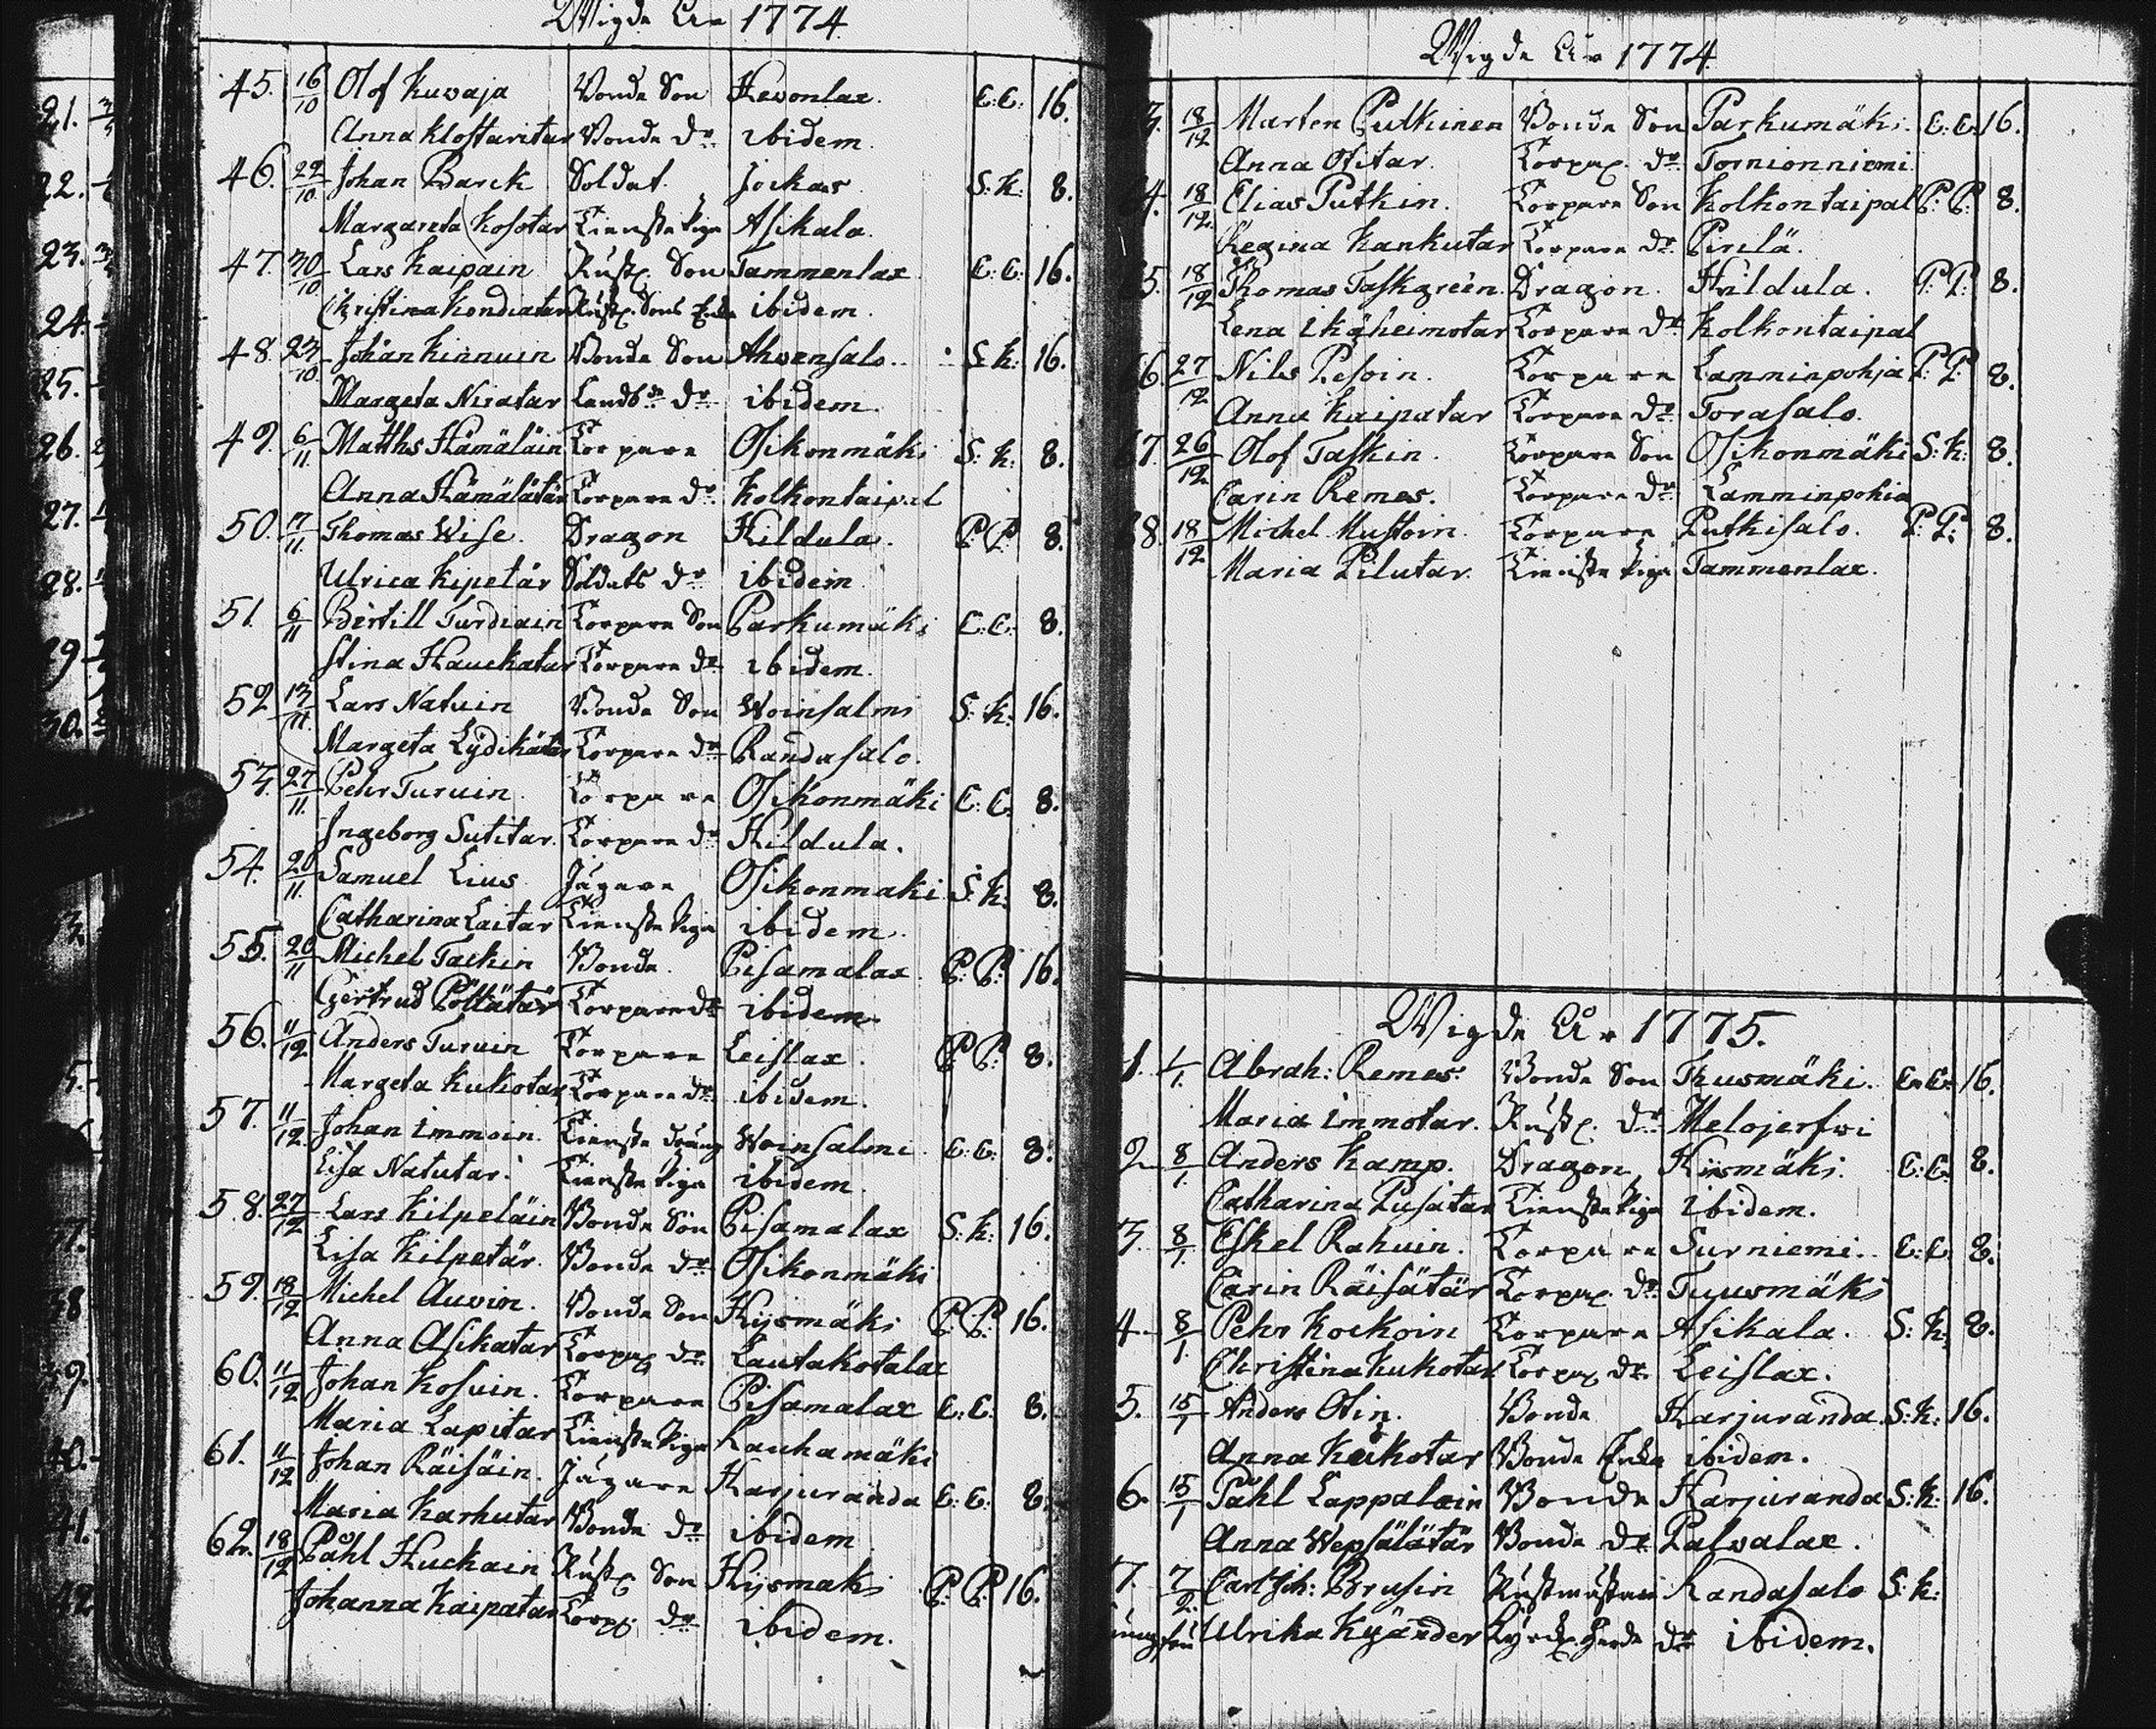 21.
22.
23.
24.
25.
26.
27.
28.
29
30.
Wigde År 1774
45. 16/10 Olof Kuvaja Bonde Son Hevonlax. C: C: 16.
Anna Klostaritar Bonde Dr ibidem.
46. 22/10 Johan Barck Soldat. Jockas S: K: 8.
Margareta Kosotar Tienste Piga Asikala.
47. 30/10 Lars Kaipain Rust. Son Tammenlax C: C: 16.
Christina Kondiatar Rust. Sons Enka ibidem.
48. 23/10 Johan Kinnuin Bonde Son Ahvensalo. S: K: 16.
Margeta Niratar Landb. Dr ibidem.
49. 6/11 Matths Hämäläin Torpare Osikonmäki S: K: 8.
Anna Hämälätär Torpare Dr Kolkontaipal
50. 17/11 Thomas Wise. Dragon Hildula. P: P: 8.
Ulrica Kipetär Soldats Dr ibidem
51. 6/11 Bertill Turdiain Torpare Son Parkumäki C: C: 8.
Stina Hauckatar Torpare Dr ibidem.
52 13/11 Lars Natuin Bonde Son Woinsalmi S: K: 16.
Margeta Lydikätär Torpare Dr Randasalo.
53. 27/11 Pehr Turuin Torpare Osikonmäki C: C: 8.
Ingeborg Sutitar. Torpare Dr Hildula.
54. 20/11 Samuel Lius Jägare Osikonmaki S: K: 8.
Catharina Laitar Tienste Piga ibidem.
55. 20/11 Michel Tackin Bonde. Pisamalax. P: P: 16.
Gertrud Pöllätär Torpare Dr ibidem.
56. 11/12 Anders Turuin Torpare Leislax. P: P: 8.
Margeta Kukotar Torpare Dr ibidem.
57. 11/12 Johan Immoin. Tienste Dräng Woinsalmi. C: C: 8.
Lisa Natutar. Tienste Piga ibidem.
58. 27/12 Lars Kilpeläin Bonde Son Pisamalax S: K: 16.
Lisa Kilpetär. Bonde Dr Osikonmäki
59. 18/12 Michel Auvin. Bonde Son Hijsmäki P: P: 16.
Anna Asikatar Torp. Dr Lautakotalax
60. 11/12 Johan Kosuin. Torpare Pisamalax C: C: 8.
Maria Lapitar Tienste Piga Rauhamäki
61. 11/12 Johan Räisäin. Jägare Harjuranda C: C: 8.
Maria Karhutar Bonde Dr ibidem
62. 18/12 Påhl Huckain Rust. Son Hijsmaki P: P: 16.
Johanna Kaipatar Torp. Dr ibidem.
Wigde År 1774
3. 18/12 Marten Pulkinen Bonde Son Parkumäki. C: C: 16.
Anna Ositar. Torpar. Dr Tornionniemi
64. 18/12 Elias Putkin. Torpare Son Kolkontaipal P: P: 8.
Regina Kankutar Torpare Dr Pirilä.
65. 18/12 Thomas Taskgreén. Dragon. Hildula. P: P: 8.
Lena Ikäheimotar Torpare Dr Kolkontaipal
66. 27/12 Nils Pesoin. Torpare Lamminpohja P: P: 8.
Anna Kaipatar Torpare Dr Torasalo.
67. 26/12 Olof Taskin. Torpare Son Osikonmäki S: K: 8.
Carin Remes. Torpare Dr Lamminpohia
68. 18/12 Michel Mustoin. Torpare Putkisalo. P: P: 8.
Maria Pilutar. Tienste Piga Tammenlax.
Wigde År 1775.
1. 1/1. Abrah: Remes. Bonde Son Thusmäki. C: C: 16.
Maria Immotar. Rust. Dr Melojerfwi
2. 8/1. Anders Kamp. Dragon Hiismäki. C: C. 8.
Catharina Pusatar Tienste Piga ibidem.
3. 8/1. Eskel Rahuin. Torpare Surniemi. C: C. 8.
Carin Räisätär Torpar. Dr Tuusmäki
4. 8/1. Pehr Kockoin Torpare Asikala. S: K: 8.
Christina Kukotar Torpar Dr Leislax.
5. 15/1 Anders Otin. Bonde Harjuranda S: K: 16.
Anna Keikotar Bonde Enka ibidem.
6. 15/1 Påhl Lappalain Bonde Harjuranda S: K: 16.
Anna Wepsälätär Bonde Dr Palvalax.
7. 7/2. Carl Joh: Brusin Rustmästare Randasalo S: K:
Jungfru Ulrika Kyander Kyrckoherde Dr ibidem.